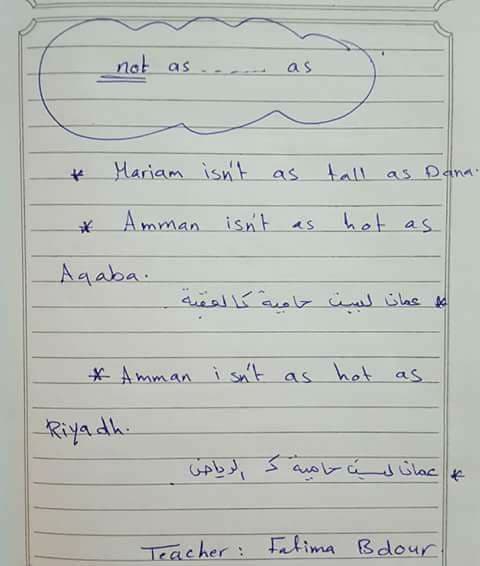 not as ------ as
* Mariam isn't as tall as Dana.
* Amman isn't as hot as
Aqaba.
* عمان ليست حامية كالعقبة
* Amman isn't as hot as
Riyadh.
* عمان ليست حامية كـ الرياض
Teacher : Fatima Bdour